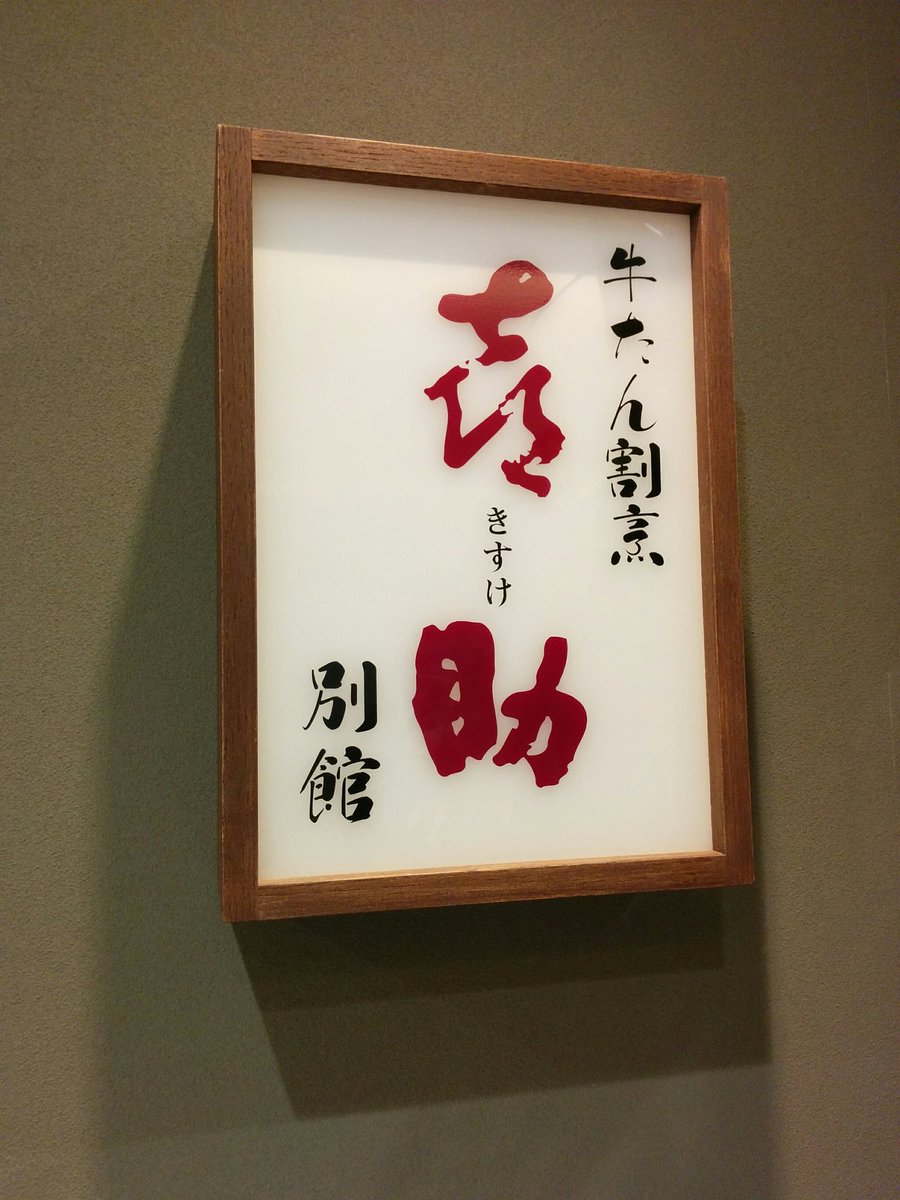 牛たん割烹
喜助
きすけ
別館